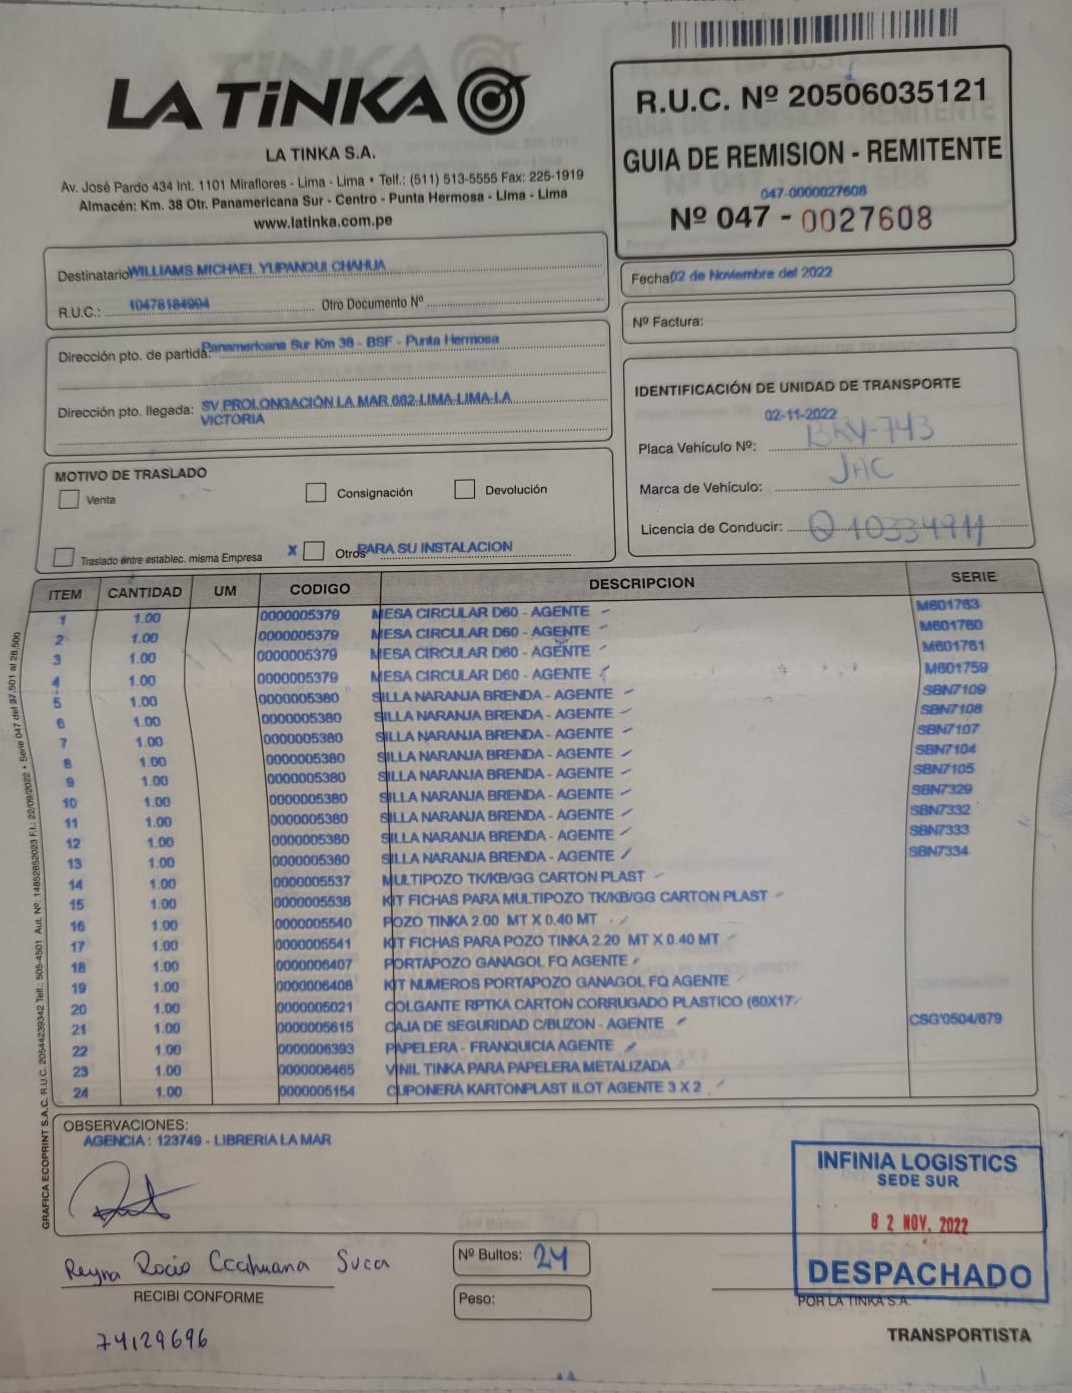 LA TiNKA
LA TINKA S.A.
Av. José Pardo 434 Int. 1101 Miraflores - Lima - Lima • Telf.: (511) 513-5555 Fax: 225-1919
Almacén: Km. 38 Otr. Panamericana Sur - Centro - Punta Hermosa - Lima - Lima
www.latinka.com.pe
R.U.C. Nº 20506035121
GUIA DE REMISION - REMITENTE
047-0000027608
Nº 047 - 0027608
Destinatario WILLIAMS MICHAEL YUPANQUI CHAHUA
R.U.C.: 10478184994 Otro Documento Nº
Fecha 02 de Noviembre del 2022
Nº Factura:
Dirección pto. de partida: Panamericana Sur Km 38 - BSF - Punta Hermosa
Dirección pto. llegada: SV PROLONGACIÓN LA MAR 682-LIMA-LIMA-LA
VICTORIA
IDENTIFICACIÓN DE UNIDAD DE TRANSPORTE
02-11-2022
Placa Vehículo Nº: BKY-743
Marca de Vehículo: JAC
Licencia de Conducir: Q 10334911
MOTIVO DE TRASLADO
Venta Consignación Devolución
Traslado entre establec. misma Empresa X Otros PARA SU INSTALACION
ITEM CANTIDAD UM CODIGO DESCRIPCION SERIE
1 1.00 0000005379 MESA CIRCULAR D60 - AGENTE M601763
2 1.00 0000005379 MESA CIRCULAR D60 - AGENTE M601760
3 1.00 0000005379 MESA CIRCULAR D60 - AGENTE M601761
4 1.00 0000005379 MESA CIRCULAR D60 - AGENTE M601759
5 1.00 0000005380 SILLA NARANJA BRENDA - AGENTE SBN7109
6 1.00 0000005380 SILLA NARANJA BRENDA - AGENTE SBN7108
7 1.00 0000005380 SILLA NARANJA BRENDA - AGENTE SBN7107
8 1.00 0000005380 SILLA NARANJA BRENDA - AGENTE SBN7104
9 1.00 0000005380 SILLA NARANJA BRENDA - AGENTE SBN7105
10 1.00 0000005380 SILLA NARANJA BRENDA - AGENTE SBN7329
11 1.00 0000005380 SILLA NARANJA BRENDA - AGENTE SBN7332
12 1.00 0000005380 SILLA NARANJA BRENDA - AGENTE SBN7333
13 1.00 0000005380 SILLA NARANJA BRENDA - AGENTE SBN7334
14 1.00 0000005537 MULTIPOZO TK/KB/GG CARTON PLAST
15 1.00 0000005538 KIT FICHAS PARA MULTIPOZO TK/KB/GG CARTON PLAST
16 1.00 0000005540 POZO TINKA 2.00 MT X 0.40 MT
17 1.00 0000005541 KIT FICHAS PARA POZO TINKA 2.20 MT X 0.40 MT
18 1.00 0000006407 PORTAPOZO GANAGOL FQ AGENTE
19 1.00 0000006408 KIT NUMEROS PORTAPOZO GANAGOL FQ AGENTE
20 1.00 0000005021 COLGANTE RPTKA CARTON CORRUGADO PLASTICO (60X17
21 1.00 0000005615 CAJA DE SEGURIDAD C/BUZON - AGENTE CSG'0504/679
22 1.00 0000006393 PAPELERA - FRANQUICIA AGENTE
23 1.00 0000006465 VINIL TINKA PARA PAPELERA METALIZADA
24 1.00 0000005154 CUPONERA KARTONPLAST ILOT AGENTE 3 X 2
GRAFICA ECOPRINT S.A.C. R.U.C. 20544239342 Telf.: 505-4501 Aut. Nº: 14852852023 F.I.: 22/09/2022 • Serie 047 del 27,501 al 28,500
OBSERVACIONES:
AGENCIA : 123749 - LIBRERIA LA MAR
INFINIA LOGISTICS
SEDE SUR
02 NOV. 2022
DESPACHADO
Nº Bultos: 24
Peso:
Reyna Rocio Ccahuana Suca
RECIBI CONFORME
74129696
POR LA TINKA S.A.
TRANSPORTISTA